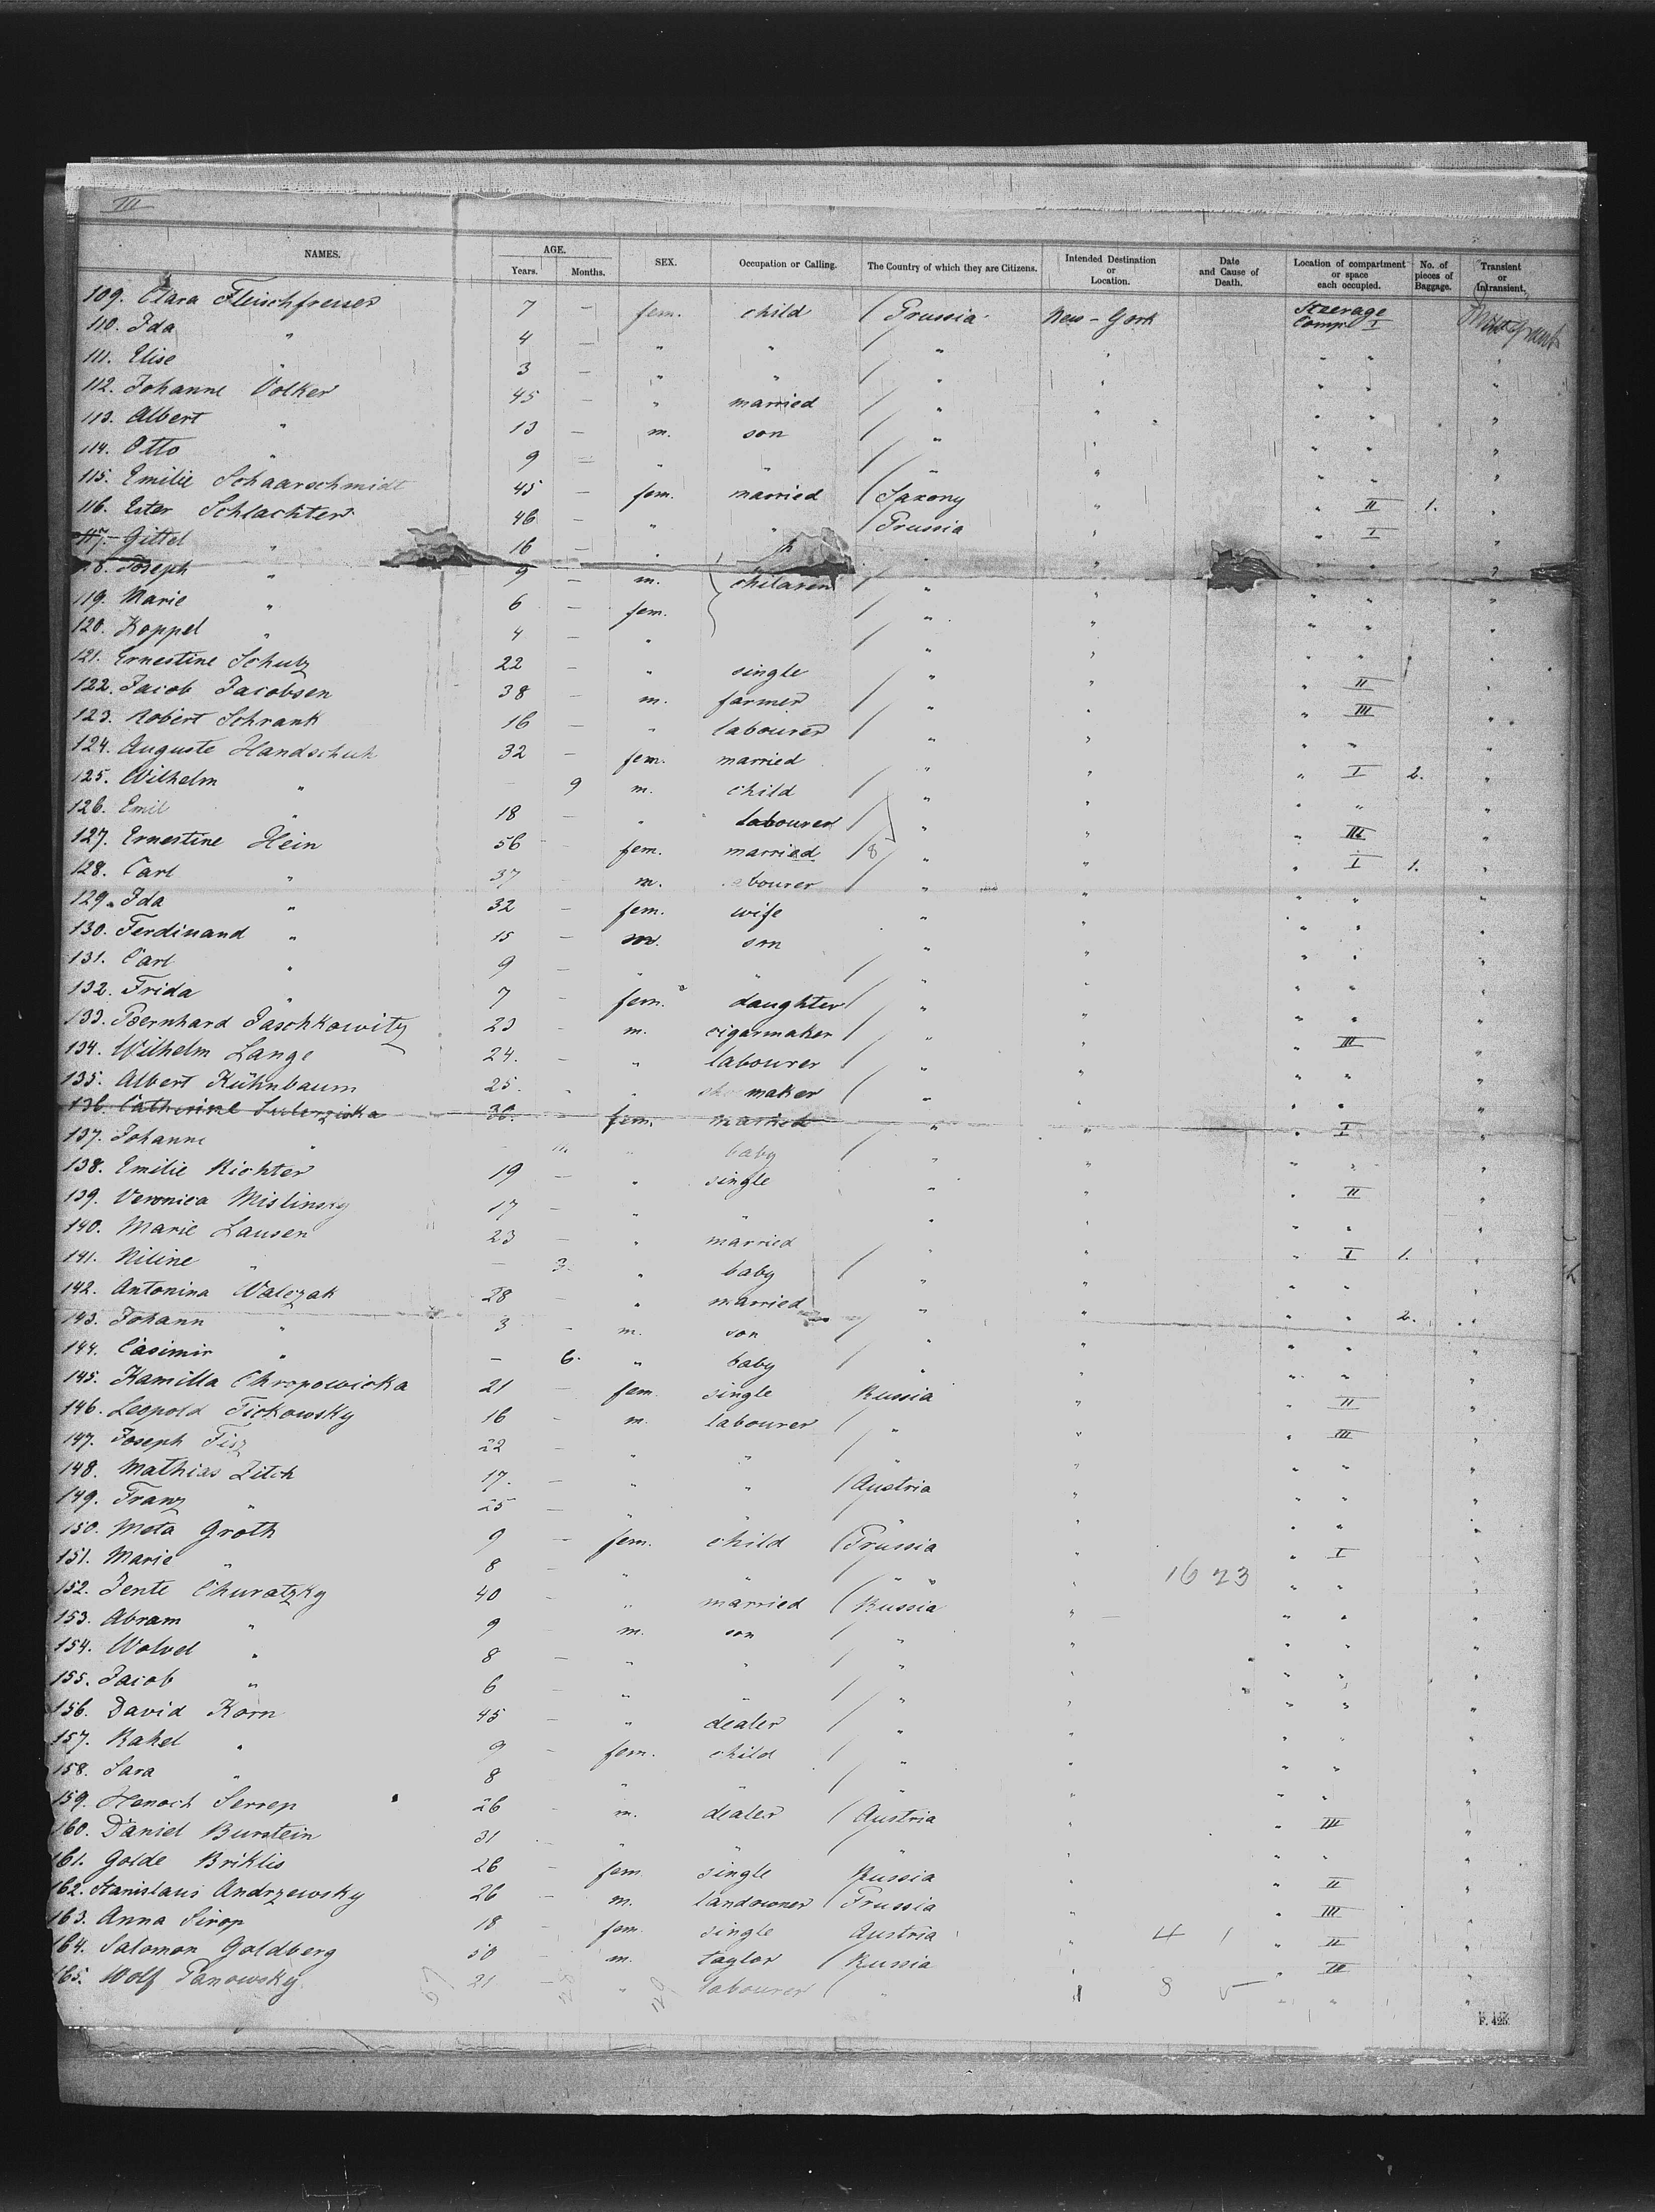 III
NAMES. AGE. Years. Months. SEX. Occupation or Calling. The Country of which they are Citizens. Intended Destination or Location. Date and Cause of Death. Location of compartment or space each occupied. No. of pieces of Baggage. Transient or Intransient.
109. Clara Fleischfresser 7 — fem. child Prussia New-York Steerage Comp. I
110. Ida " 4 — " " " " " "
111. Elise " 3 — " " " " " "
112. Johanne Volker 45 — " married " " " "
113. Albert " 13 — m. son " " " "
114. Otto " 9 — " " " " " "
115. Emilie Schaarschmidt 45 — fem. married Saxony " " II 1. "
116. Ester Schlachter 46 — " " Prussia " " I "
117. Gittel " 16 — " " " " " "
118. Joseph " 9 — m. children " " " " "
119. Marie " 6 — fem. " " " " "
120. Koppel " 4 — " " " " " "
121. Ernestine Schulz 22 — " single " " " II "
122. Jacob Jacobsen 38 — m. farmer " " " III "
123. Robert Schrank 16 — " labourer " " " " "
124. Auguste Handschuh 32 — fem. married " " " I 2. "
125. Wilhelm " — 9 m. child " " " " "
126. Emil " 18 — " labourer " " " III "
127. Ernestine Hein 56 — fem. married 8 " " " I 1. "
128. Carl " 37 m. labourer " " " " "
129. Ida " 32 — fem. wife " " " " "
130. Ferdinand " 15 — m. son " " " " "
131. Carl " 9 — " " " " " " "
132. Frida " 7 — fem. daughter " " " " "
133. Bernhard Jaschkowitz 23 — m. cigarmaker " " " III "
134. Wilhelm Lange 24. — " labourer " " " " "
135. Albert Kühnbaum 25. — " maker " " " " "
136. Catherine 36. — fem. married " " " I "
137. Johanne " " baby " " " " "
138. Emilie Richter 19 — " single " " " II "
139. Veronica Mislinsky 17 — " " " " " " "
140. Marie Lausen 23 — " married " " " I 1. "
141. Niline " — 3. " baby " " " " "
142. Antonina Walczak 28 " married " " " " 2. "
143. Johann " 3 — m. son " " " " "
144. Casimir " — 6. " baby " " " " "
145. Kamilla Chropowicka 21 — fem. single Russia " " II "
146. Leopold Tickowsky 16 — m. labourer " " " III "
147. Joseph Fisz 22 — " " " " " " "
148. Mathias Zitch 17. — " " Austria " " " "
149. Franz " 25 — " " " " " " "
150. Meta Groth 9 — fem. child Prussia " " I "
151. Marie " 8 " " " " 16 23 " " "
152. Jente Churatzky 40 — " married Russia " " " "
153. Abram " 9 m. son " " " " "
154. Wolvel " 8 — " " " " " " "
155. Jacob " 6 — " " " " " " "
156. David Korn 45 — " dealer " " " " "
157. Rahel " 9 — fem. child " " " " "
158. Sara " 8 " " " " " " "
159. Henoch Serrep 26 m. dealer Austria " " III "
160. Daniel Burstein 31 " " " " " " "
161. Golde Briklis 26 — fem. single Russia " " II "
162. Stanislaus Andrzewsky 26 — m. landowner Prussia " " III "
163. Anna Sirop 18 — fem. single Austria " 4 1 " II "
164. Salomon Goldberg 50 — m. taylor Russia " " III "
165. Wolf Panowsky 21 — " labourer " " 8 " " "
F. 425.